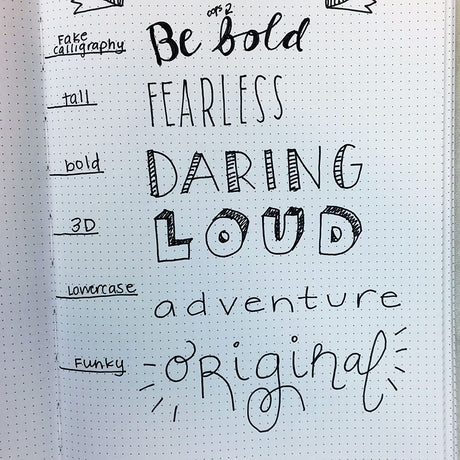 oops 2
Fake calligraphy Be bold
tall FEARLESS
bold DARING
3D LOUD
Lowercase adventure
Funky ORiginal